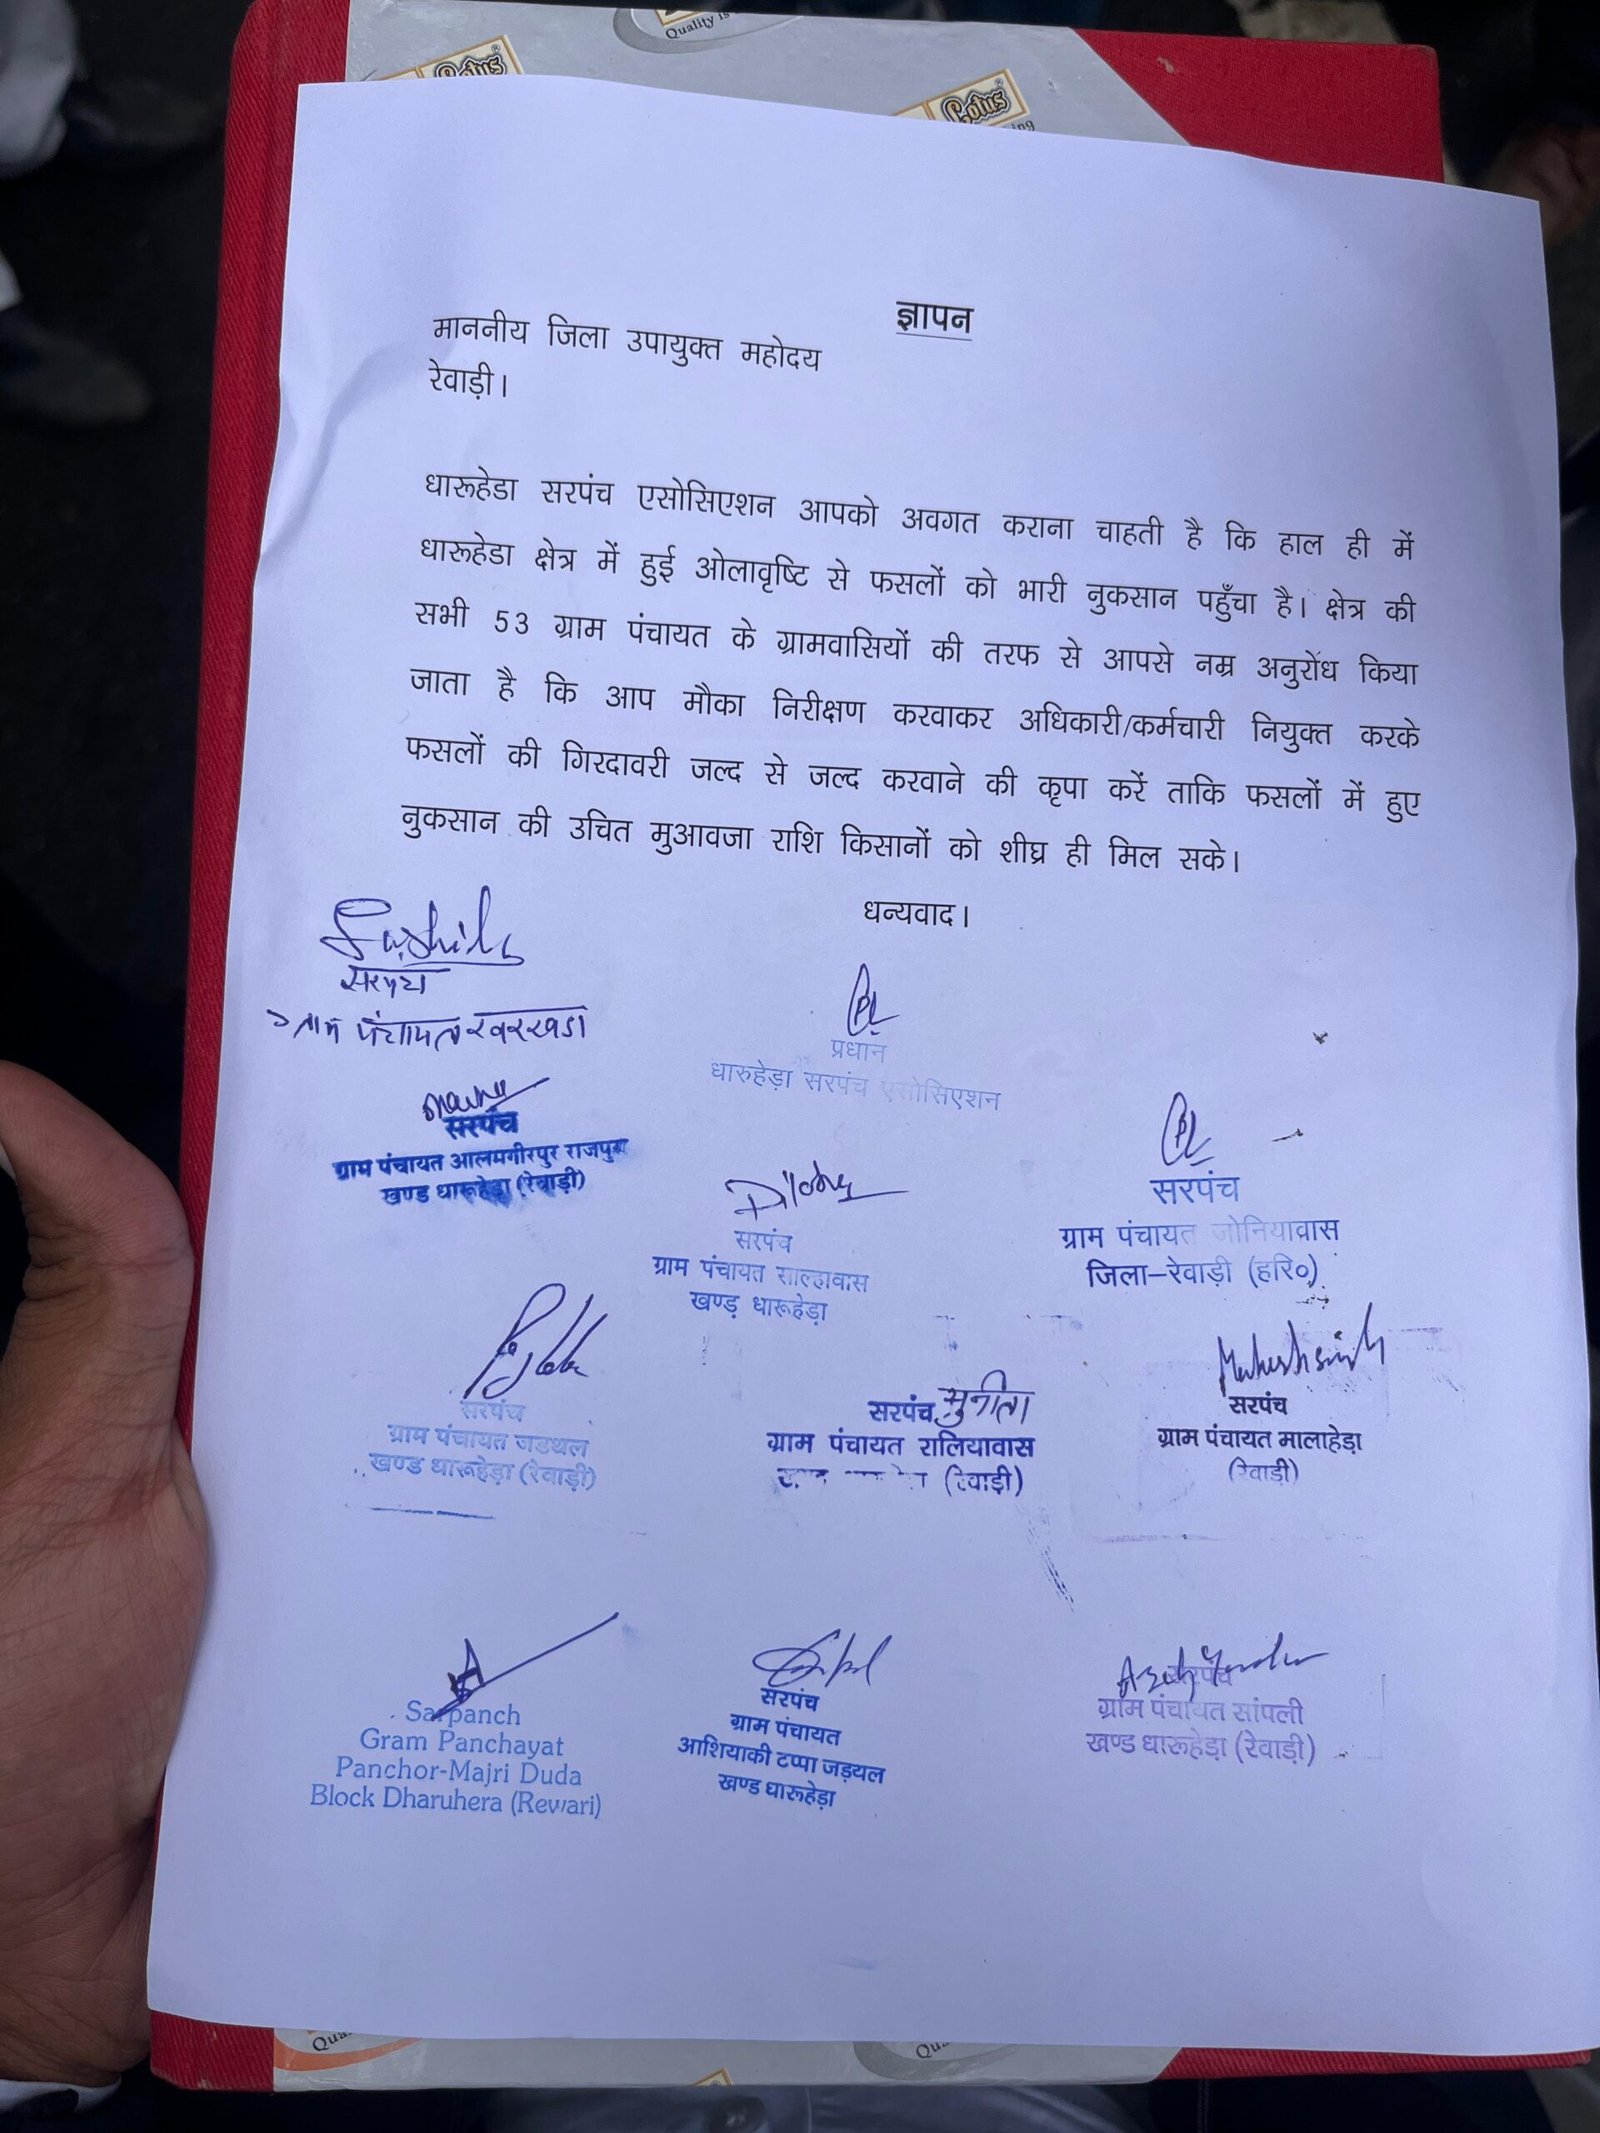 Quality is
Lotus
Lotus
ज्ञापन
माननीय जिला उपायुक्त महोदय
रेवाड़ी।
धारूहेडा सरपंच एसोसिएशन आपको अवगत कराना चाहती है कि हाल ही में
धारूहेडा क्षेत्र में हुई ओलावृष्टि से फसलों को भारी नुकसान पहुँचा है। क्षेत्र की
सभी 53 ग्राम पंचायत के ग्रामवासियों की तरफ से आपसे नम्र अनुरोध किया
जाता है कि आप मौका निरीक्षण करवाकर अधिकारी/कर्मचारी नियुक्त करके
फसलों की गिरदावरी जल्द से जल्द करवाने की कृपा करें ताकि फसलों में हुए
नुकसान की उचित मुआवजा राशि किसानों को शीघ्र ही मिल सके।
धन्यवाद।
सरपंच
ग्राम पंचायत
प्रधान
धारुहेड़ा सरपंच एसोसिएशन
सरपंच
ग्राम पंचायत आलमगीरपुर राजपुरा
खण्ड धारूहेड़ा (रेवाड़ी)
सरपंच
ग्राम पंचायत साल्हावास
खण्ड़ धारूहेड़ा
सरपंच
ग्राम पंचायत जोनियावास
जिला–रेवाड़ी (हरि०)
सरपंच
ग्राम पंचायत जडथल
खण्ड धारूहेड़ा (रेवाड़ी)
सरपंच सुनीता
ग्राम पंचायत रालियावास
(रेवाड़ी)
Mahesh Singh
सरपंच
ग्राम पंचायत मालाहेड़ा
(रेवाड़ी)
Sarpanch
Gram Panchayat
Panchor-Majri Duda
Block Dharuhera (Rewari)
सरपंच
ग्राम पंचायत
आशियाकी टप्पा जड़यल
खण्ड धारूहेड़ा
सरपंच
ग्राम पंचायत सांपली
खण्ड धारूहेड़ा (रेवाड़ी)